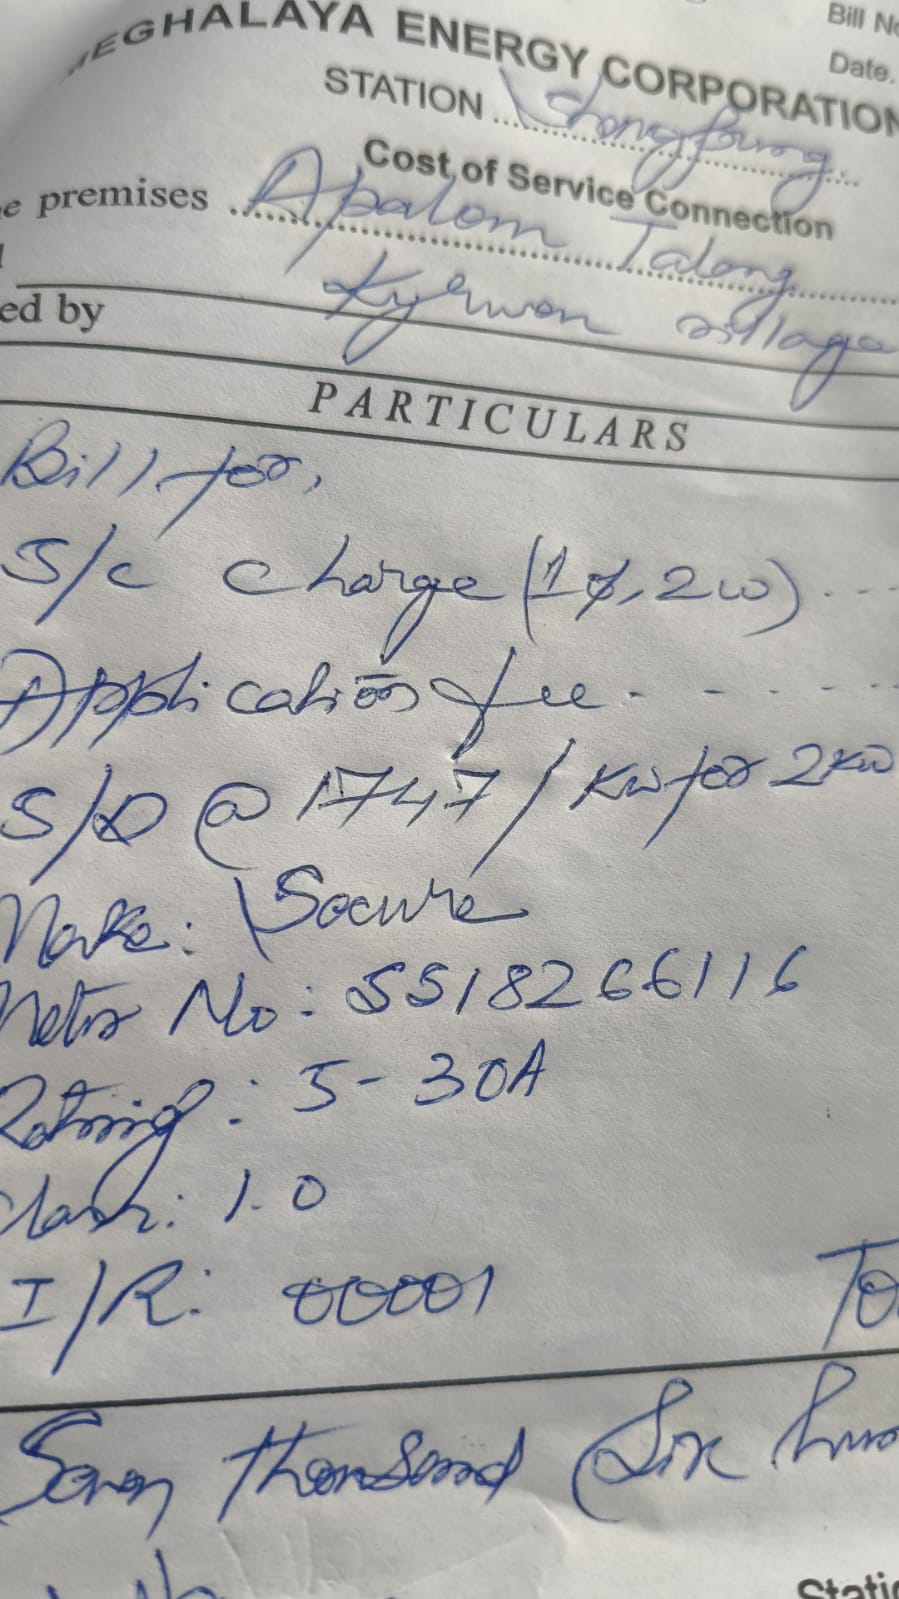 MEGHALAYA ENERGY CORPORATION
Bill No
Date.
STATION Shongpung
Cost of Service Connection
e premises Apalom Talong
Kyrwen village
ed by
PARTICULARS
Bill for,
S/c charge (1φ, 2w) ....
Application fee. - - - -
S/D @ 1747/Kw for 2Kw
Make: Secure
Meter No: SS18266116
Rating: 5-30A
Class: 1.0
I/R: 00001
To
Seven thousand Six hun
Static